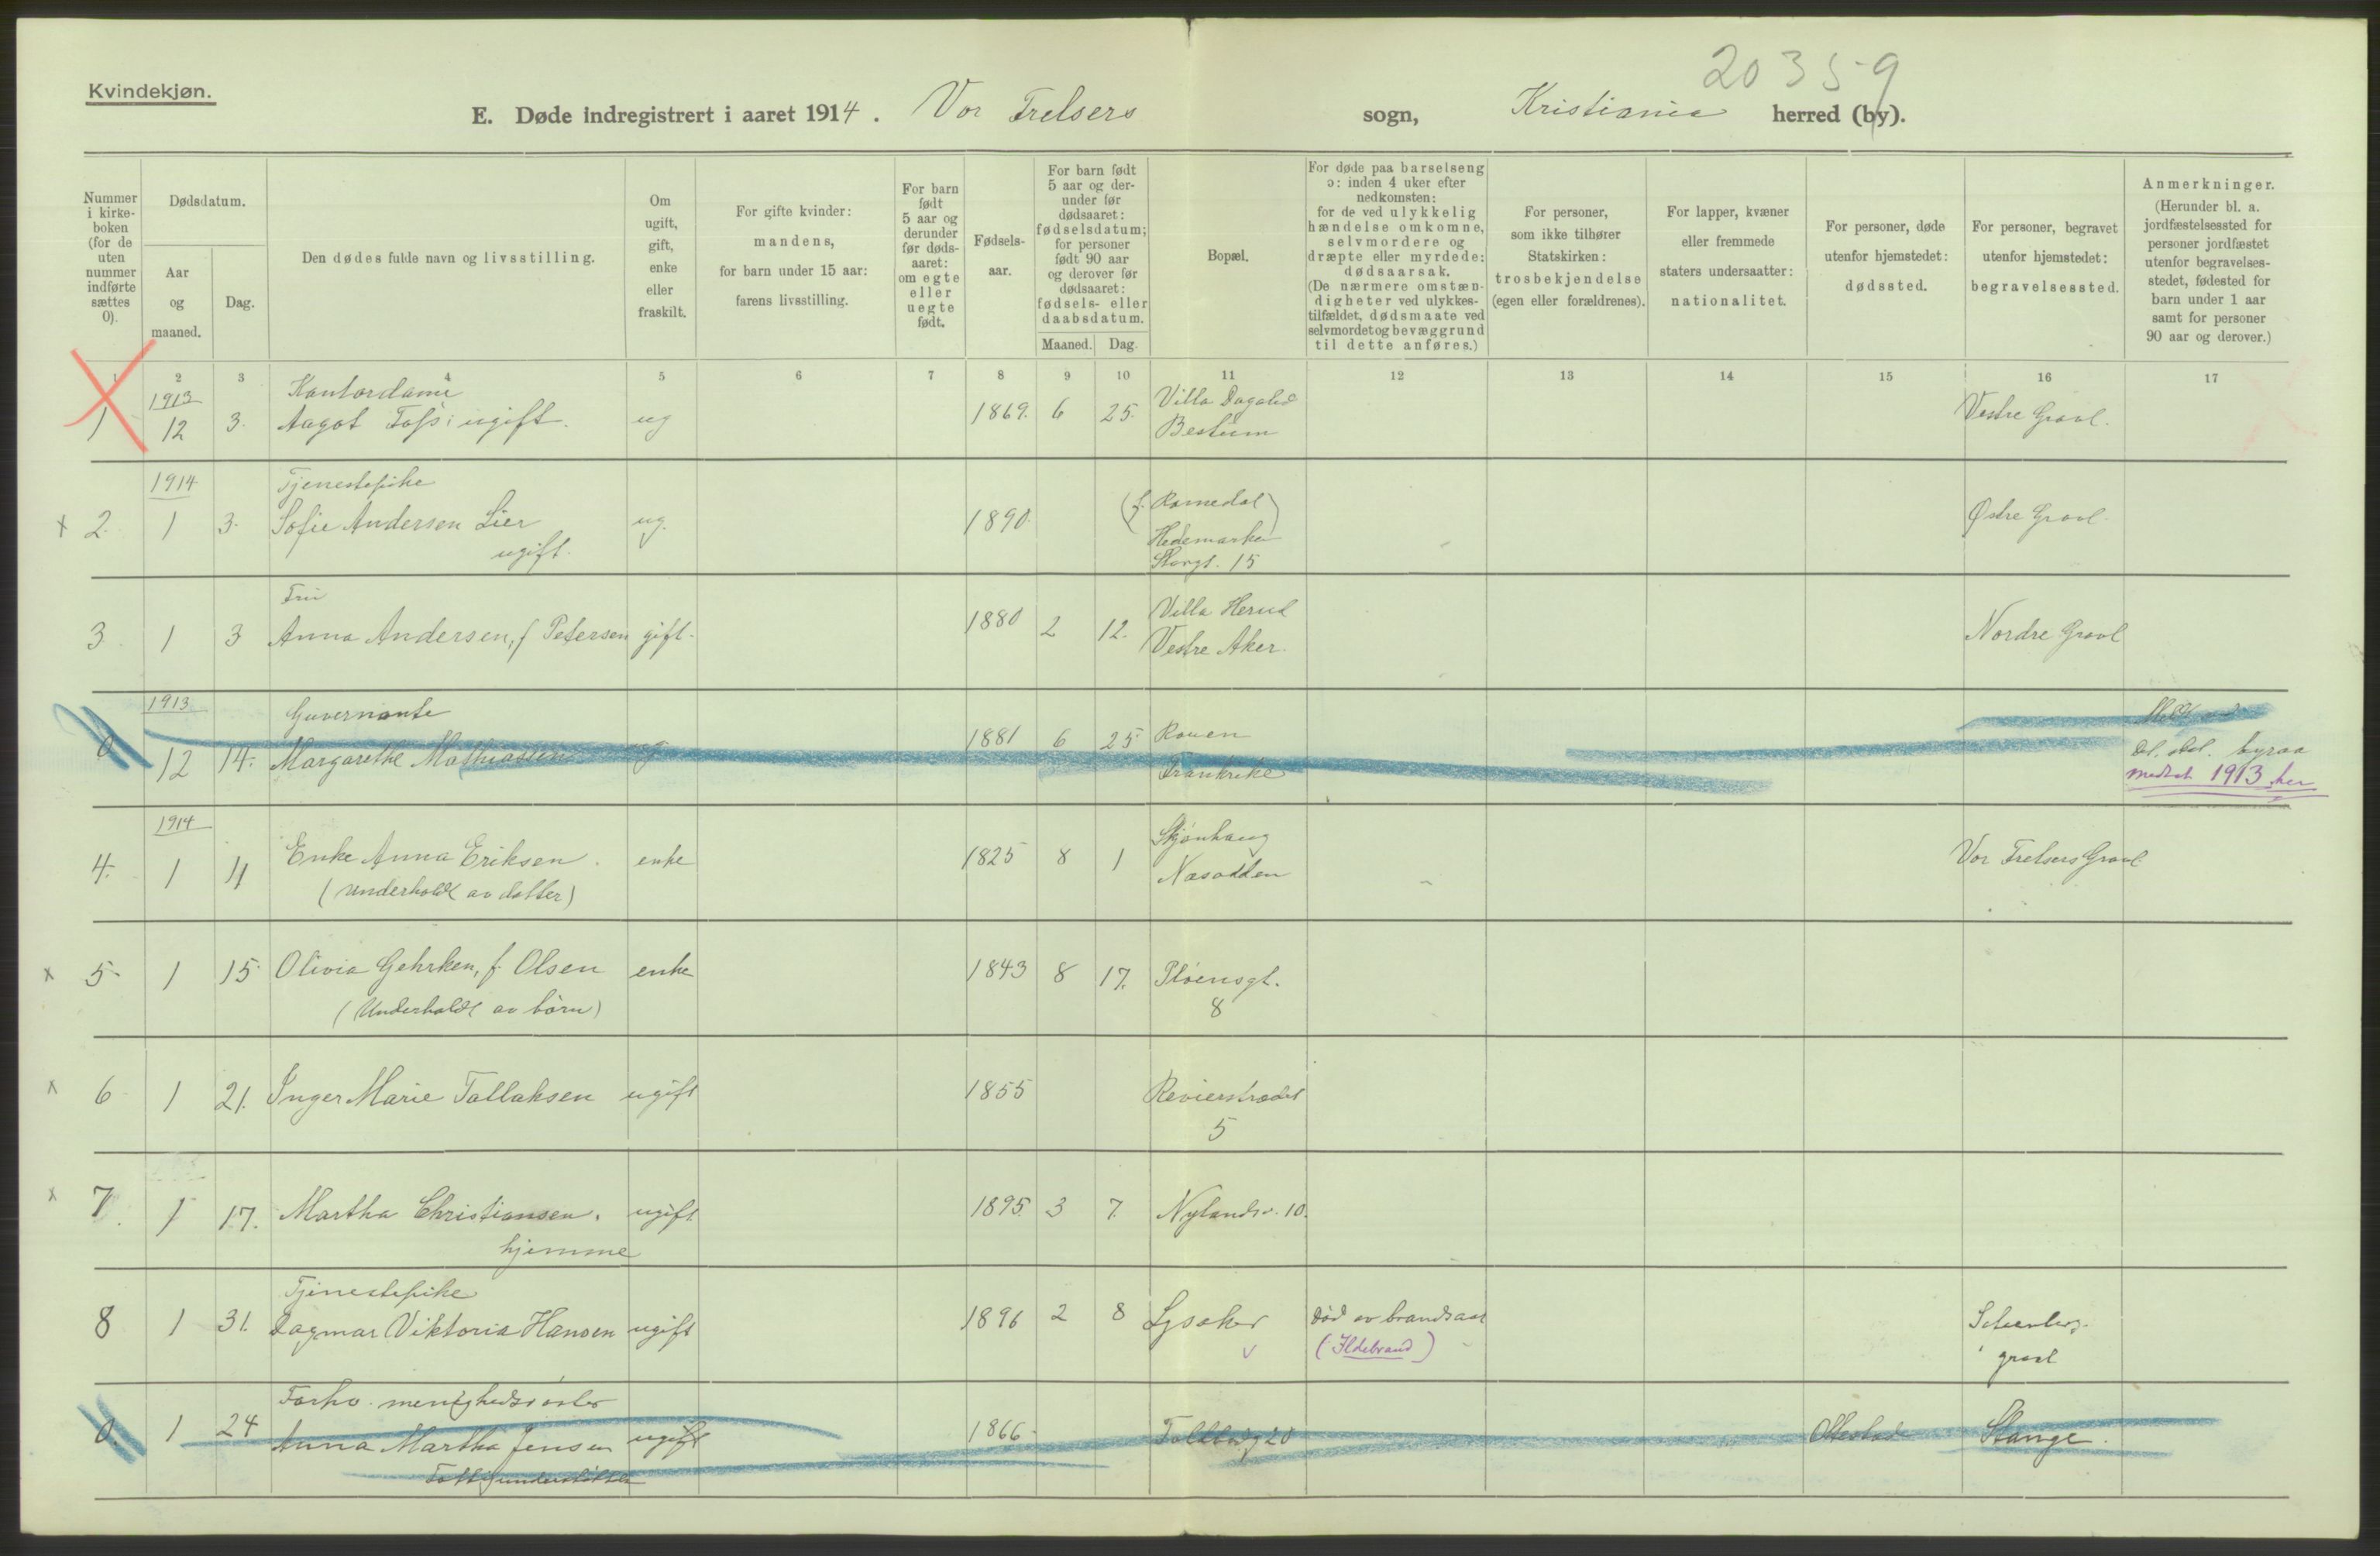 20359
Kvindekjøn.
E. Døde indregistrert i aaret 1914. Vor Frelsers sogn, Kristiania herred (by).
Nummer i kirkeboken (for de uten nummer indførte sættes 0).
Dødsdatum.
Aar og maaned.
Dag.
Den dødes fulde navn og livsstilling.
Om ugift, gift, enke eller fraskilt.
For gifte kvinder: mandens, for barn under 15 aar: farens livsstilling.
For barn født 5 aar og derunder før dødsaaret: om egte eller uegte født.
Fødselsaar.
For barn født 5 aar og derunder før dødsaaret: fødselsdatum; for personer født 90 aar og derover før dødsaaret: fødsels- eller daabsdatum.
Maaned. Dag.
Bopæl.
For døde paa barselseng ɔ: inden 4 uker efter nedkomsten: for de ved ulykkelig hændelse omkomne, selvmordere og dræpte eller myrdede: dødsaarsak. (De nærmere omstændigheter ved ulykkestilfældet, dødsmaate ved selvmordet og bevæggrund til dette anføres.)
For personer, som ikke tilhører Statskirken: trosbekjendelse (egen eller forældrenes).
For lapper, kvæner eller fremmede staters undersaatter: nationalitet.
For personer, døde utenfor hjemstedet: dødssted.
For personer, begravet utenfor hjemstedet: begravelsessted.
Anmerkninger. (Herunder bl. a. jordfæstelsessted for personer jordfæstet utenfor begravelsesstedet, fødested for barn under 1 aar samt for personer 90 aar og derover.)
1 2 3 4 5 6 7 8 9 10 11 12 13 14 15 16 17
1913 Kontordame Villa Dagalid
1 12 3. Aagot Foss: ugift. ug 1869. 6 25. Bestum Vestre Gravl.
1914 Tjenestepike (f. Romedal)
x 2. 1 3. Sofie Andersen Lier ug. 1890. Hedemarken Østre Gravl.
ugift. Storgt. 15
Fru Villa Herud
3 1 3 Anna Andersen, f Petersen gift. 1880 2 12. Vestre Aker. Nordre Gravl
1913 Guvernante 1881 6 25 Rouen
0 12 14. Margarethe Mathiassen ug Frankrike Det. stat. byraa
medtat 1913 her
1914 Skjønhaug
4. 1 4 Enke Anna Eriksen. enke 1825 8 1 Næsodden Vor Frelsers Gravl
(underholdt av datter)
x 5 1 15 Olivia Gehrken, f. Olsen enke 1843 8 17. Pløensgt.
(Underholdt av børn) 8
x 6 1 21. Inger Marie Tallaksen ugift 1855 Revierstrædet
5
x 7. 1 17. Martha Christiansen. ugift 1895 3 7. Nylandsv. 10.
hjemme
Tjenestepike
8 1 31. Dagmar Viktoria Hansen ugift 1896 2 8 Lysaker Død av brandsaar
(Ildebrand) gravl
Forhv. menighedssøster
0. 1 24 Anna Martha Jensen ugift 1866 Toldbodg 20 Ottestad Stange.
Fattigunderstøttet